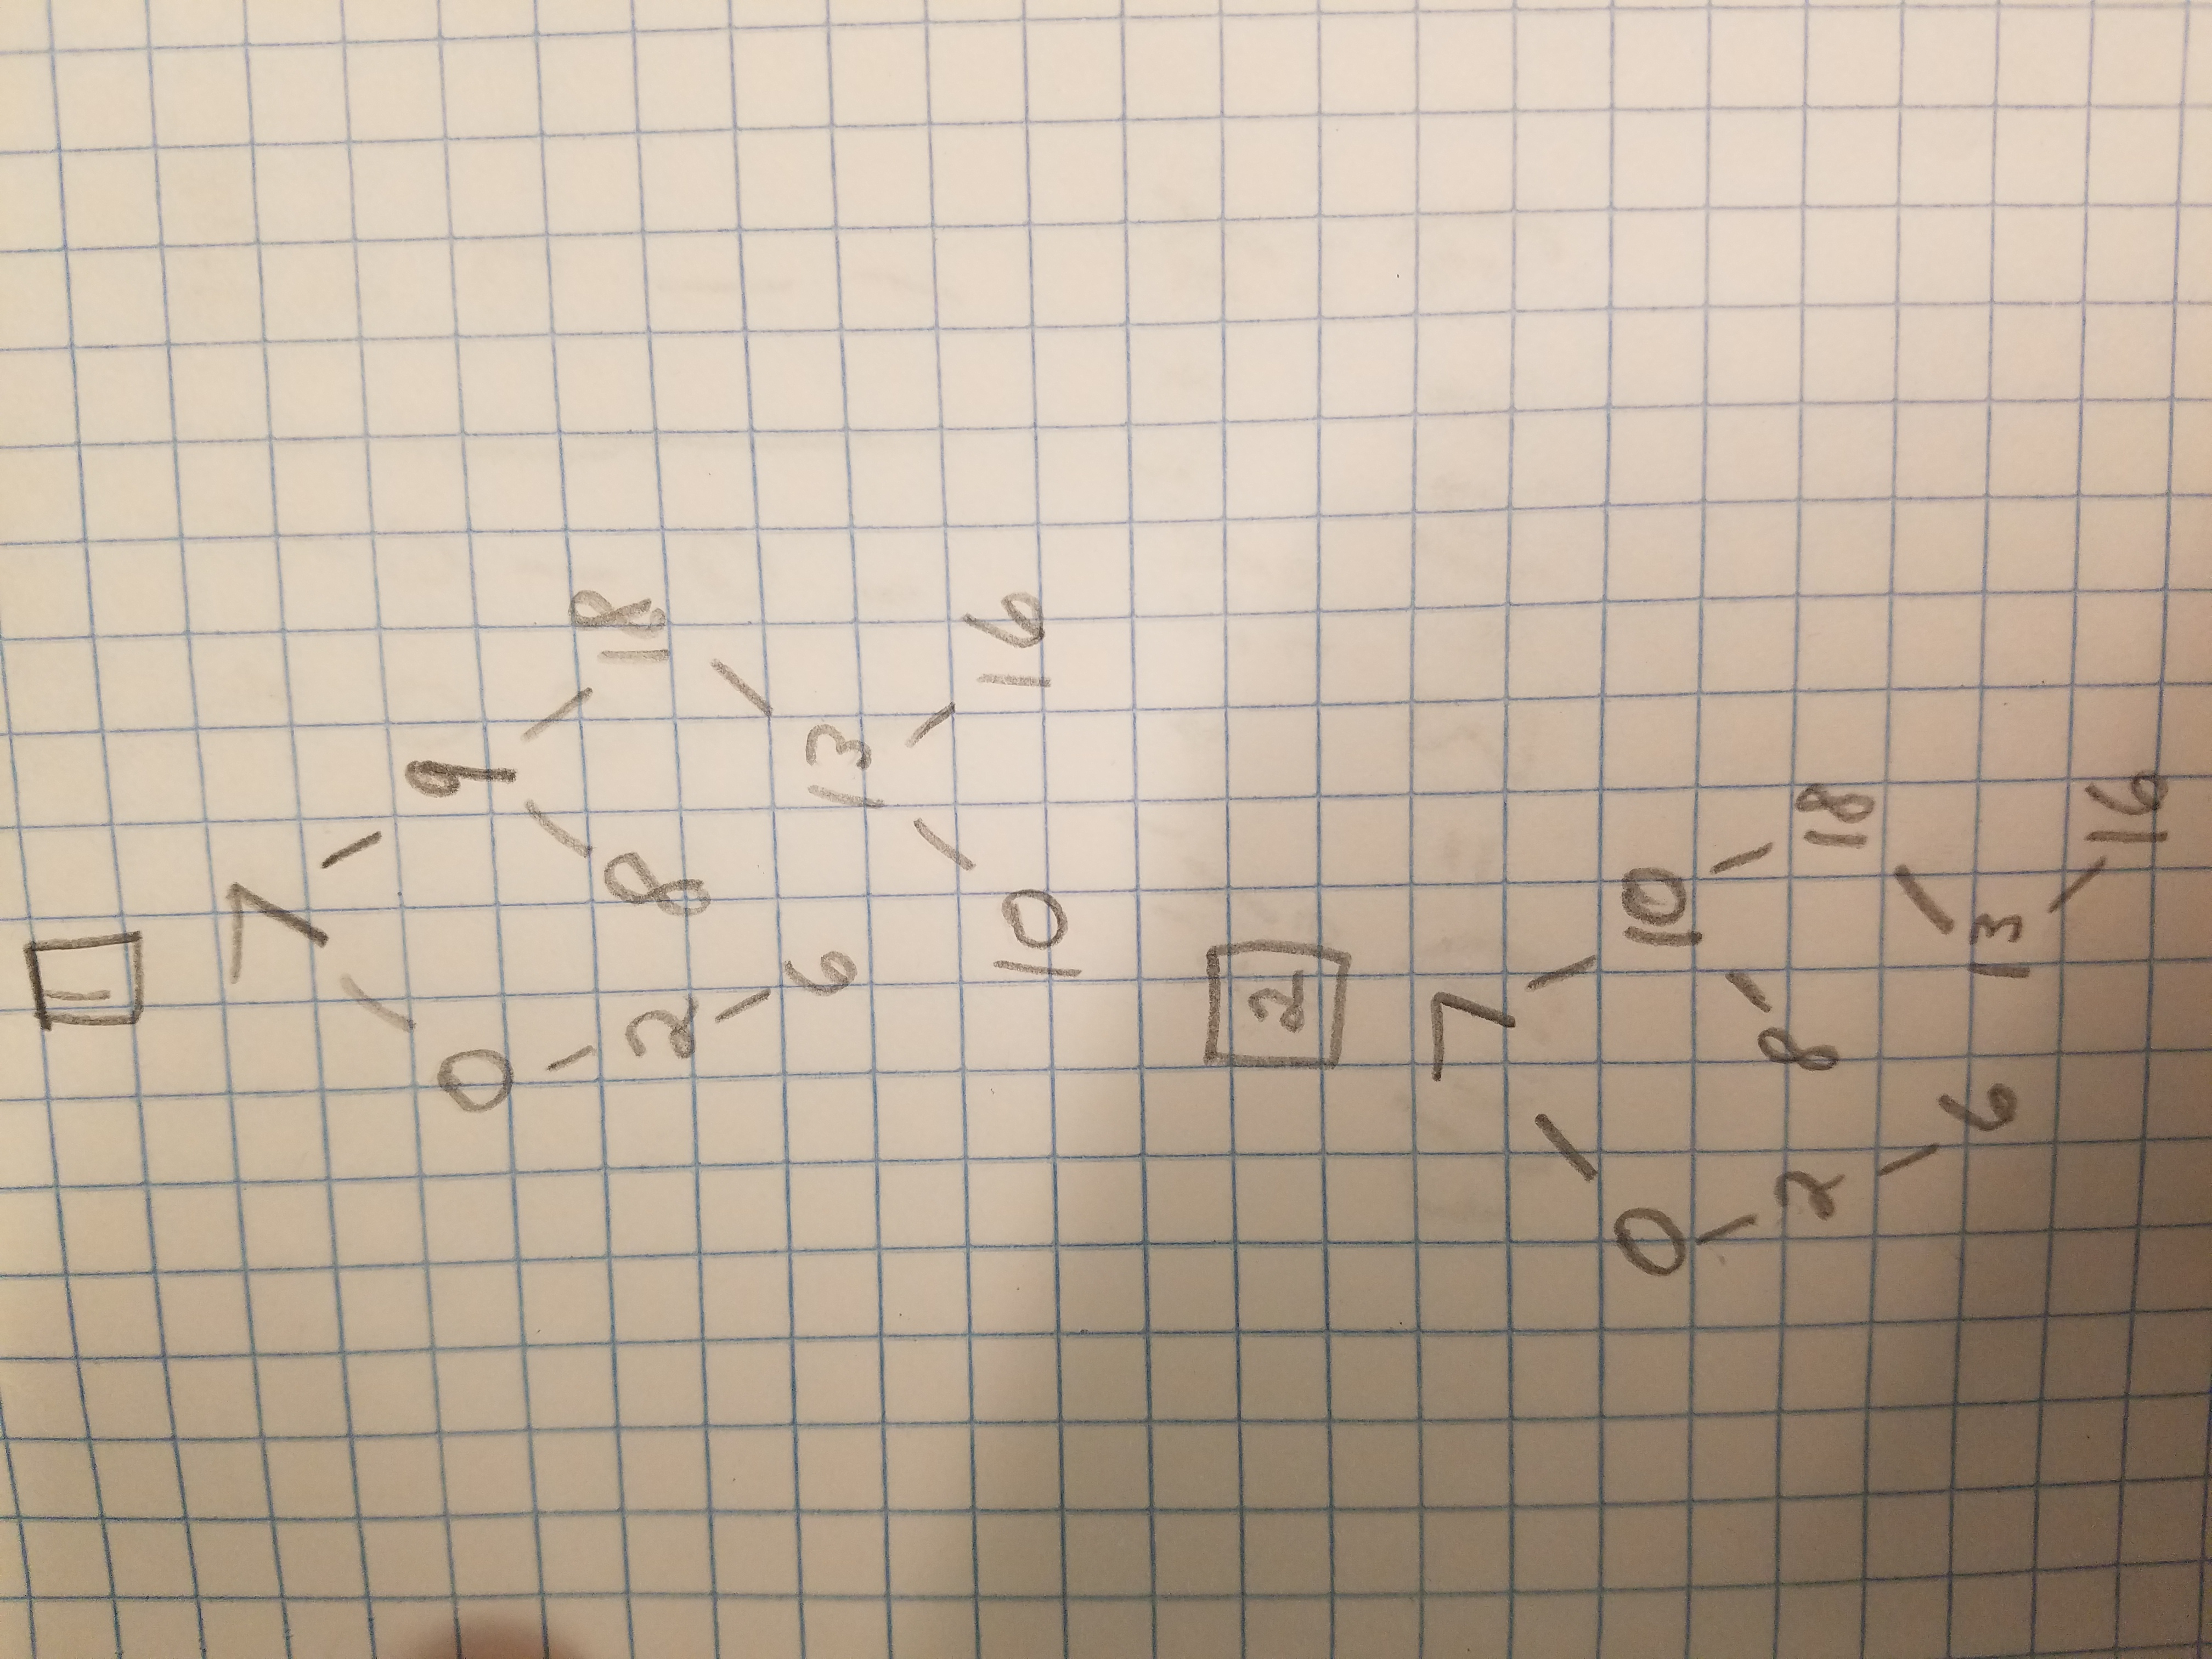 1
7
0 9
2 8 18
6 13
10 16
2
7
0 10
2 8 18
6 13
16